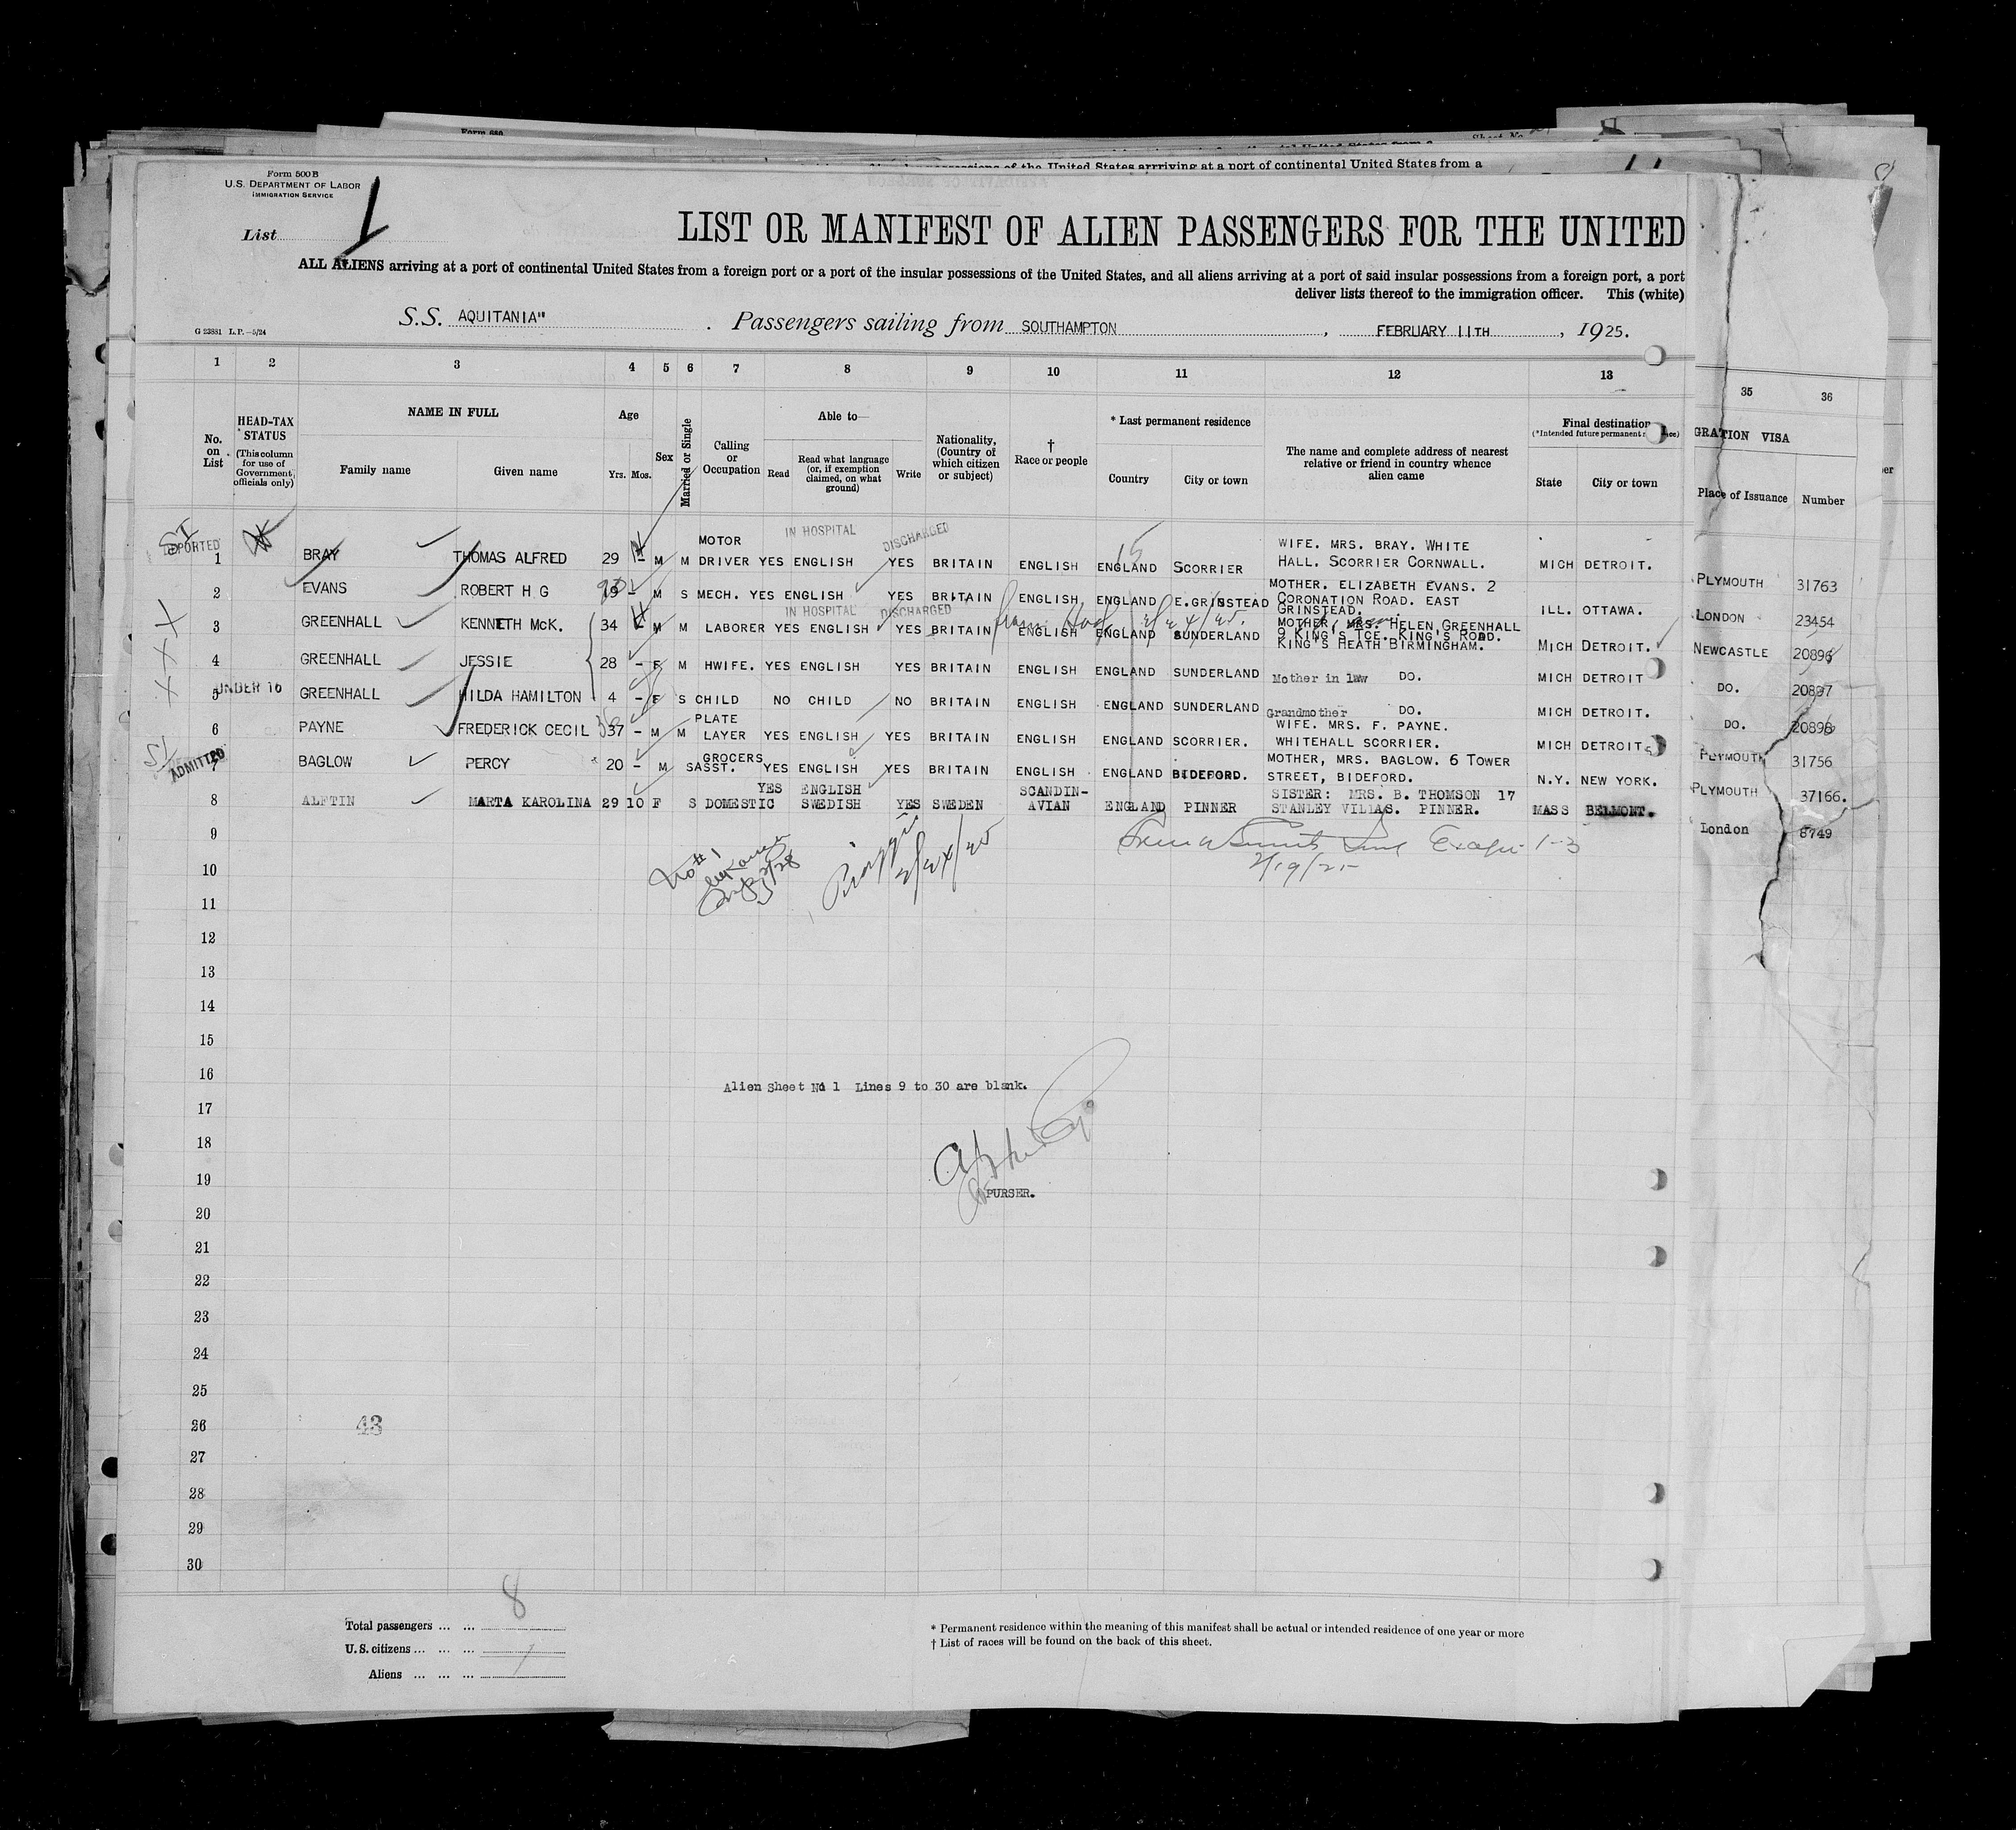 Form 500 B
U.S. DEPARTMENT OF LABOR
IMMIGRATION SERVICE
List 1
LIST OR MANIFEST OF ALIEN PASSENGERS FOR THE UNITED
ALL ALIENS arriving at a port of continental United States from a foreign port or a port of the insular possessions of the United States, and all aliens arriving at a port of said insular possessions from a foreign port, a port
deliver lists thereof to the immigration officer. This (white)
S.S. AQUITANIA" . Passengers sailing from SOUTHAMPTON, FEBRUARY 11TH, 1925.
G 23881 L.P.—5/24
1 2 3 4 5 6 7 8 9 10 11 12 13 35 36
No. on List
HEAD-TAX STATUS (This column for use of Government officials only)
NAME IN FULL
Family name Given name
Age
Yrs. Mos.
Sex
Married or Single
Calling or Occupation
Able to—
Read
Read what language (or, if exemption claimed, on what ground)
Write
Nationality, (Country of which citizen or subject)
† Race or people
* Last permanent residence
Country City or town
The name and complete address of nearest relative or friend in country whence alien came
Final destination
State City or town
GRATION VISA
Place of Issuance Number
SI DEPORTED 1 BRAY THOMAS ALFRED 29 - M M MOTOR DRIVER YES ENGLISH YES BRITAIN ENGLISH ENGLAND SCORRIER WIFE. MRS. BRAY. WHITE HALL. SCORRIER CORNWALL. MICH DETROIT. PLYMOUTH 31763
IN HOSPITAL DISCHARGED
2 EVANS ROBERT H G 19 - M S MECH. YES ENGLISH YES BRITAIN ENGLISH ENGLAND E.GRINSTEAD MOTHER. ELIZABETH EVANS. 2 CORONATION ROAD. EAST GRINSTEAD. ILL. OTTAWA. LONDON 23454
IN HOSPITAL DISCHARGED
X 3 GREENHALL KENNETH McK. 34 - M M LABORER YES ENGLISH YES BRITAIN ENGLISH ENGLAND SUNDERLAND MOTHER, MRS. HELEN GREENHALL 9 KING'S TCE. KING'S ROAD. KING'S HEATH BIRMINGHAM. MICH DETROIT. NEWCASTLE 20896
X 4 GREENHALL JESSIE 28 - F M HWIFE. YES ENGLISH YES BRITAIN ENGLISH ENGLAND SUNDERLAND Mother in law DO. MICH DETROIT DO. 20897
X UNDER 16 5 GREENHALL HILDA HAMILTON 4 - F S CHILD NO CHILD NO BRITAIN ENGLISH ENGLAND SUNDERLAND Grandmother DO. MICH DETROIT. DO. 20898
6 PAYNE FREDERICK CECIL 37 - M M PLATE LAYER YES ENGLISH YES BRITAIN ENGLISH ENGLAND SCORRIER. WIFE. MRS. F. PAYNE. WHITEHALL SCORRIER. MICH DETROIT. PLYMOUTH 31756
SI ADMITTED 7 BAGLOW PERCY 20 - M S GROCERS ASST. YES ENGLISH YES BRITAIN ENGLISH ENGLAND BIDEFORD. MOTHER, MRS. BAGLOW. 6 TOWER STREET, BIDEFORD. N.Y. NEW YORK. PLYMOUTH 37166.
8 ALFTIN MARTA KAROLINA 29 10 F S DOMESTIC YES ENGLISH SWEDISH YES SWEDEN SCANDINAVIAN ENGLAND PINNER SISTER: MRS. B. THOMSON 17 STANLEY VILLAS. PINNER. MASS BELMONT. London 8749
9
10
2/24/25
2/19/25
11
12
13
14
15
16
Alien Sheet No 1 Lines 9 to 30 are blank.
17
18
19
PURSER.
20
21
22
23
24
25
26
43
27
28
29
30
Total passengers ... ... 8
U.S. citizens ... ... ...
Aliens ... ... ...
* Permanent residence within the meaning of this manifest shall be actual or intended residence of one year or more
† List of races will be found on the back of this sheet.